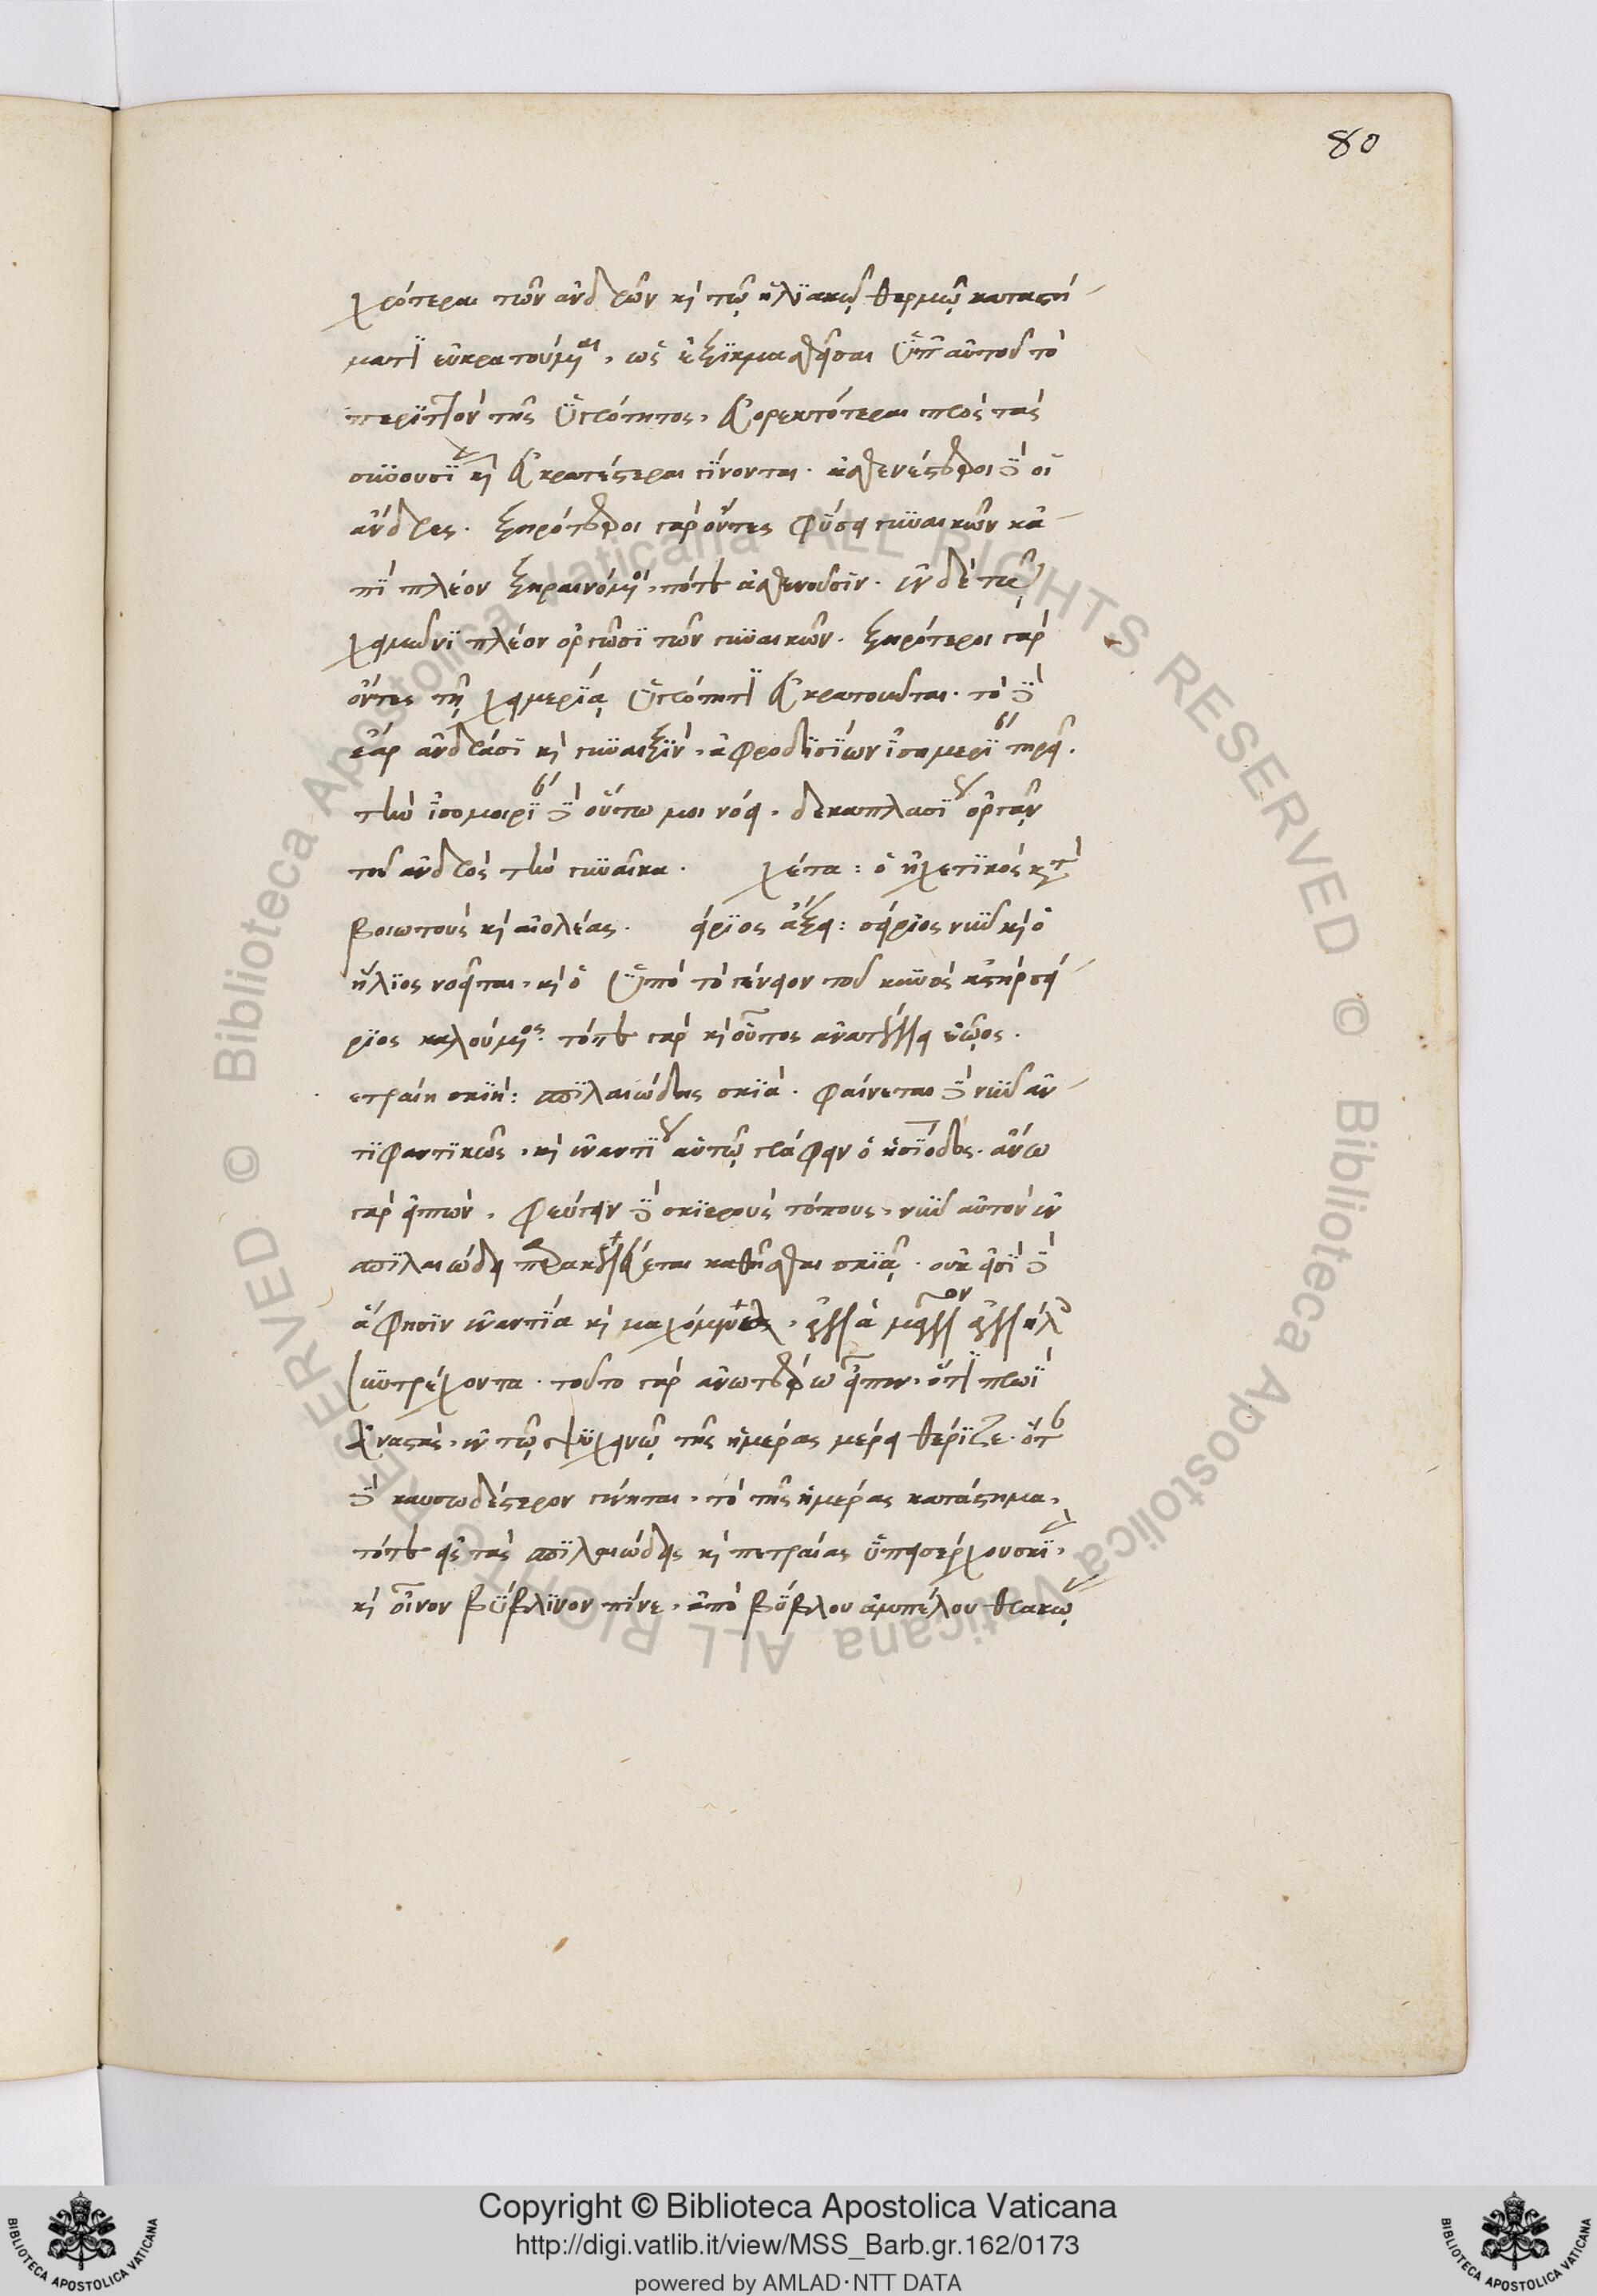 80
χρότεραι τῶν ἀνδρῶν κὶ τῷ ἡλϊακῷ θερμῷ καταστή-
ματϊ εὐκρατούμεναι, ὡς ἐξϊκμασθῆσαι ὑπ' αὐτοῦ τὸ
περϊττὸν τῆς ὑγρότητος, εὐορεκτότεραι πρὸς τὰς
κὶ εὐκρατέστεραι γίνονται. ἀσθενέστεροι δὲ οἱ
ἄνδρες. ξηρότεροι γὰρ ὄντες φύσει γυναικῶν κἀ-
πὶ πλέον ξηραινόμενοι, τότε ἀσθενοῦσϊν. ἐν δὲ τῷ
χειμῶνϊ πλέον ὀργῶσϊ τῶν γυναικῶν. ξηρότεροι γὰρ
ὄντες τῇ χειμερίᾳ ὑγρότητϊ εὐκρατοῦνται. τὸ δὲ
ἔαρ ἀνδράσϊ κὶ γυναιξὶν, ἀφροδϊσίων ἰσημερίαν τηρεῖ.
τὴν ἰσομοιρίαν δὲ οὕτω μοι νόει. δεκαπλασίως ὀργᾶν
τοῦ ἀνδρὸς τὴν γυναῖκα. χέτα: ὁ ἠχετϊκὸς κατὰ
βοιωτοὺς κὶ αἰολέας. σείρϊος ἄζει: σείρϊος νῦν κὶ ὁ
ἥλϊος νοεῖται, κὶ ὁ ὑπὸ τὸ γένειον τοῦ κυνὸς ἀστὴρ σεί-
ρϊος καλούμενος. τότε γὰρ κὶ οὗτος ἀνατέλλει ἑῷος.
ετραίη σκϊή: σπϊλαιώδης σκϊά. φαίνεται δὲ νῦν ἀν-
τϊφαντϊκῶς, κὶ ἐναντίως αὑτῷ γράφειν ὁ ἡσίοδος. ἄνω
γὰρ εἰπὼν, φεύγειν δὲ σκϊεροὺς τόπους, νῦν αὐτὸν ἐν
σπϊλαιώδει παρακελεύεται καθῆσθαι σκϊᾷ. οὐκ εἰσὶ δὲ
ἅ φησϊν ἐναντία κὶ μαχόμενα, ἀλλὰ μᾶλλον ἀλλήλοις
συντρέχοντα. τοῦτο γὰρ ἀνωτέρω εἶπεν, ὅτϊ πρωῒ
ἀναστὰς, ἐν τῷ ψυχεινῷ τῆς ἡμέρας μέρει θέρϊζε. ὅτε
δὲ καυσωδέστερον γίνηται, τὸ τῆς ἡμέρας κατάστημα,
τότε εἰς τὰς σπϊλαιώδεις κὶ πετραίας ὑπεισέρχου σκϊὰς,
κὶ οἶνον βύβλϊνον πίνε, ἀπὸ βύβλου ἀμπέλου θρακῴας
Copyright © Biblioteca Apostolica Vaticana
http://digi.vatlib.it/view/MSS_Barb.gr.162/0173
powered by AMLAD·NTT DATA